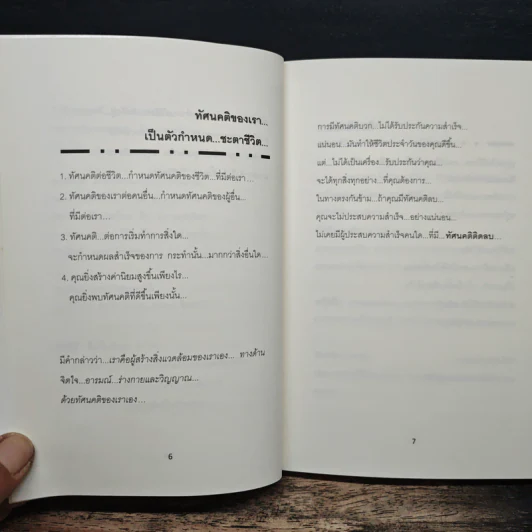 ทัศนคติของเรา...
เป็นตัวกำหนด...ชะตาชีวิต...
1. ทัศนคติต่อชีวิต...กำหนดทัศนคติของชีวิต...ที่มีต่อเรา...
2. ทัศนคติของเราต่อคนอื่น...กำหนดทัศนคติของผู้อื่น...
ที่มีต่อเรา...
3. ทัศนคติ...ต่อการเริ่มทำการสิ่งใด...
จะกำหนดผลสำเร็จของการ กระทำนั้น...มากกว่าสิ่งอื่นใด...
4. คุณยิ่งสร้างค่านิยมสูงขึ้นเพียงไร...
คุณยิ่งพบทัศนคติที่ดีขึ้นเพียงนั้น...
มีคำกล่าวว่า...เราคือผู้สร้างสิ่งแวดล้อมของเราเอง... ทางด้าน
จิตใจ...อารมณ์...ร่างกายและวิญญาณ...
ด้วยทัศนคติของเราเอง...
6
การมีทัศนคติบวก...ไม่ได้รับประกันความสำเร็จ...
แน่นอน...มันทำให้ชีวิตประจำวันของคุณดีขึ้น...
แต่...ไม่ได้เป็นเครื่อง...รับประกันว่าคุณ...
จะได้ทุกสิ่งทุกอย่าง...ที่คุณต้องการ...
ในทางตรงกันข้าม...ถ้าคุณมีทัศนคติลบ...
คุณจะไม่ประสบความสำเร็จ...อย่างแน่นอน...
ไม่เคยมีผู้ประสบความสำเร็จคนใด...ที่มี...ทัศนคติติดลบ...
7